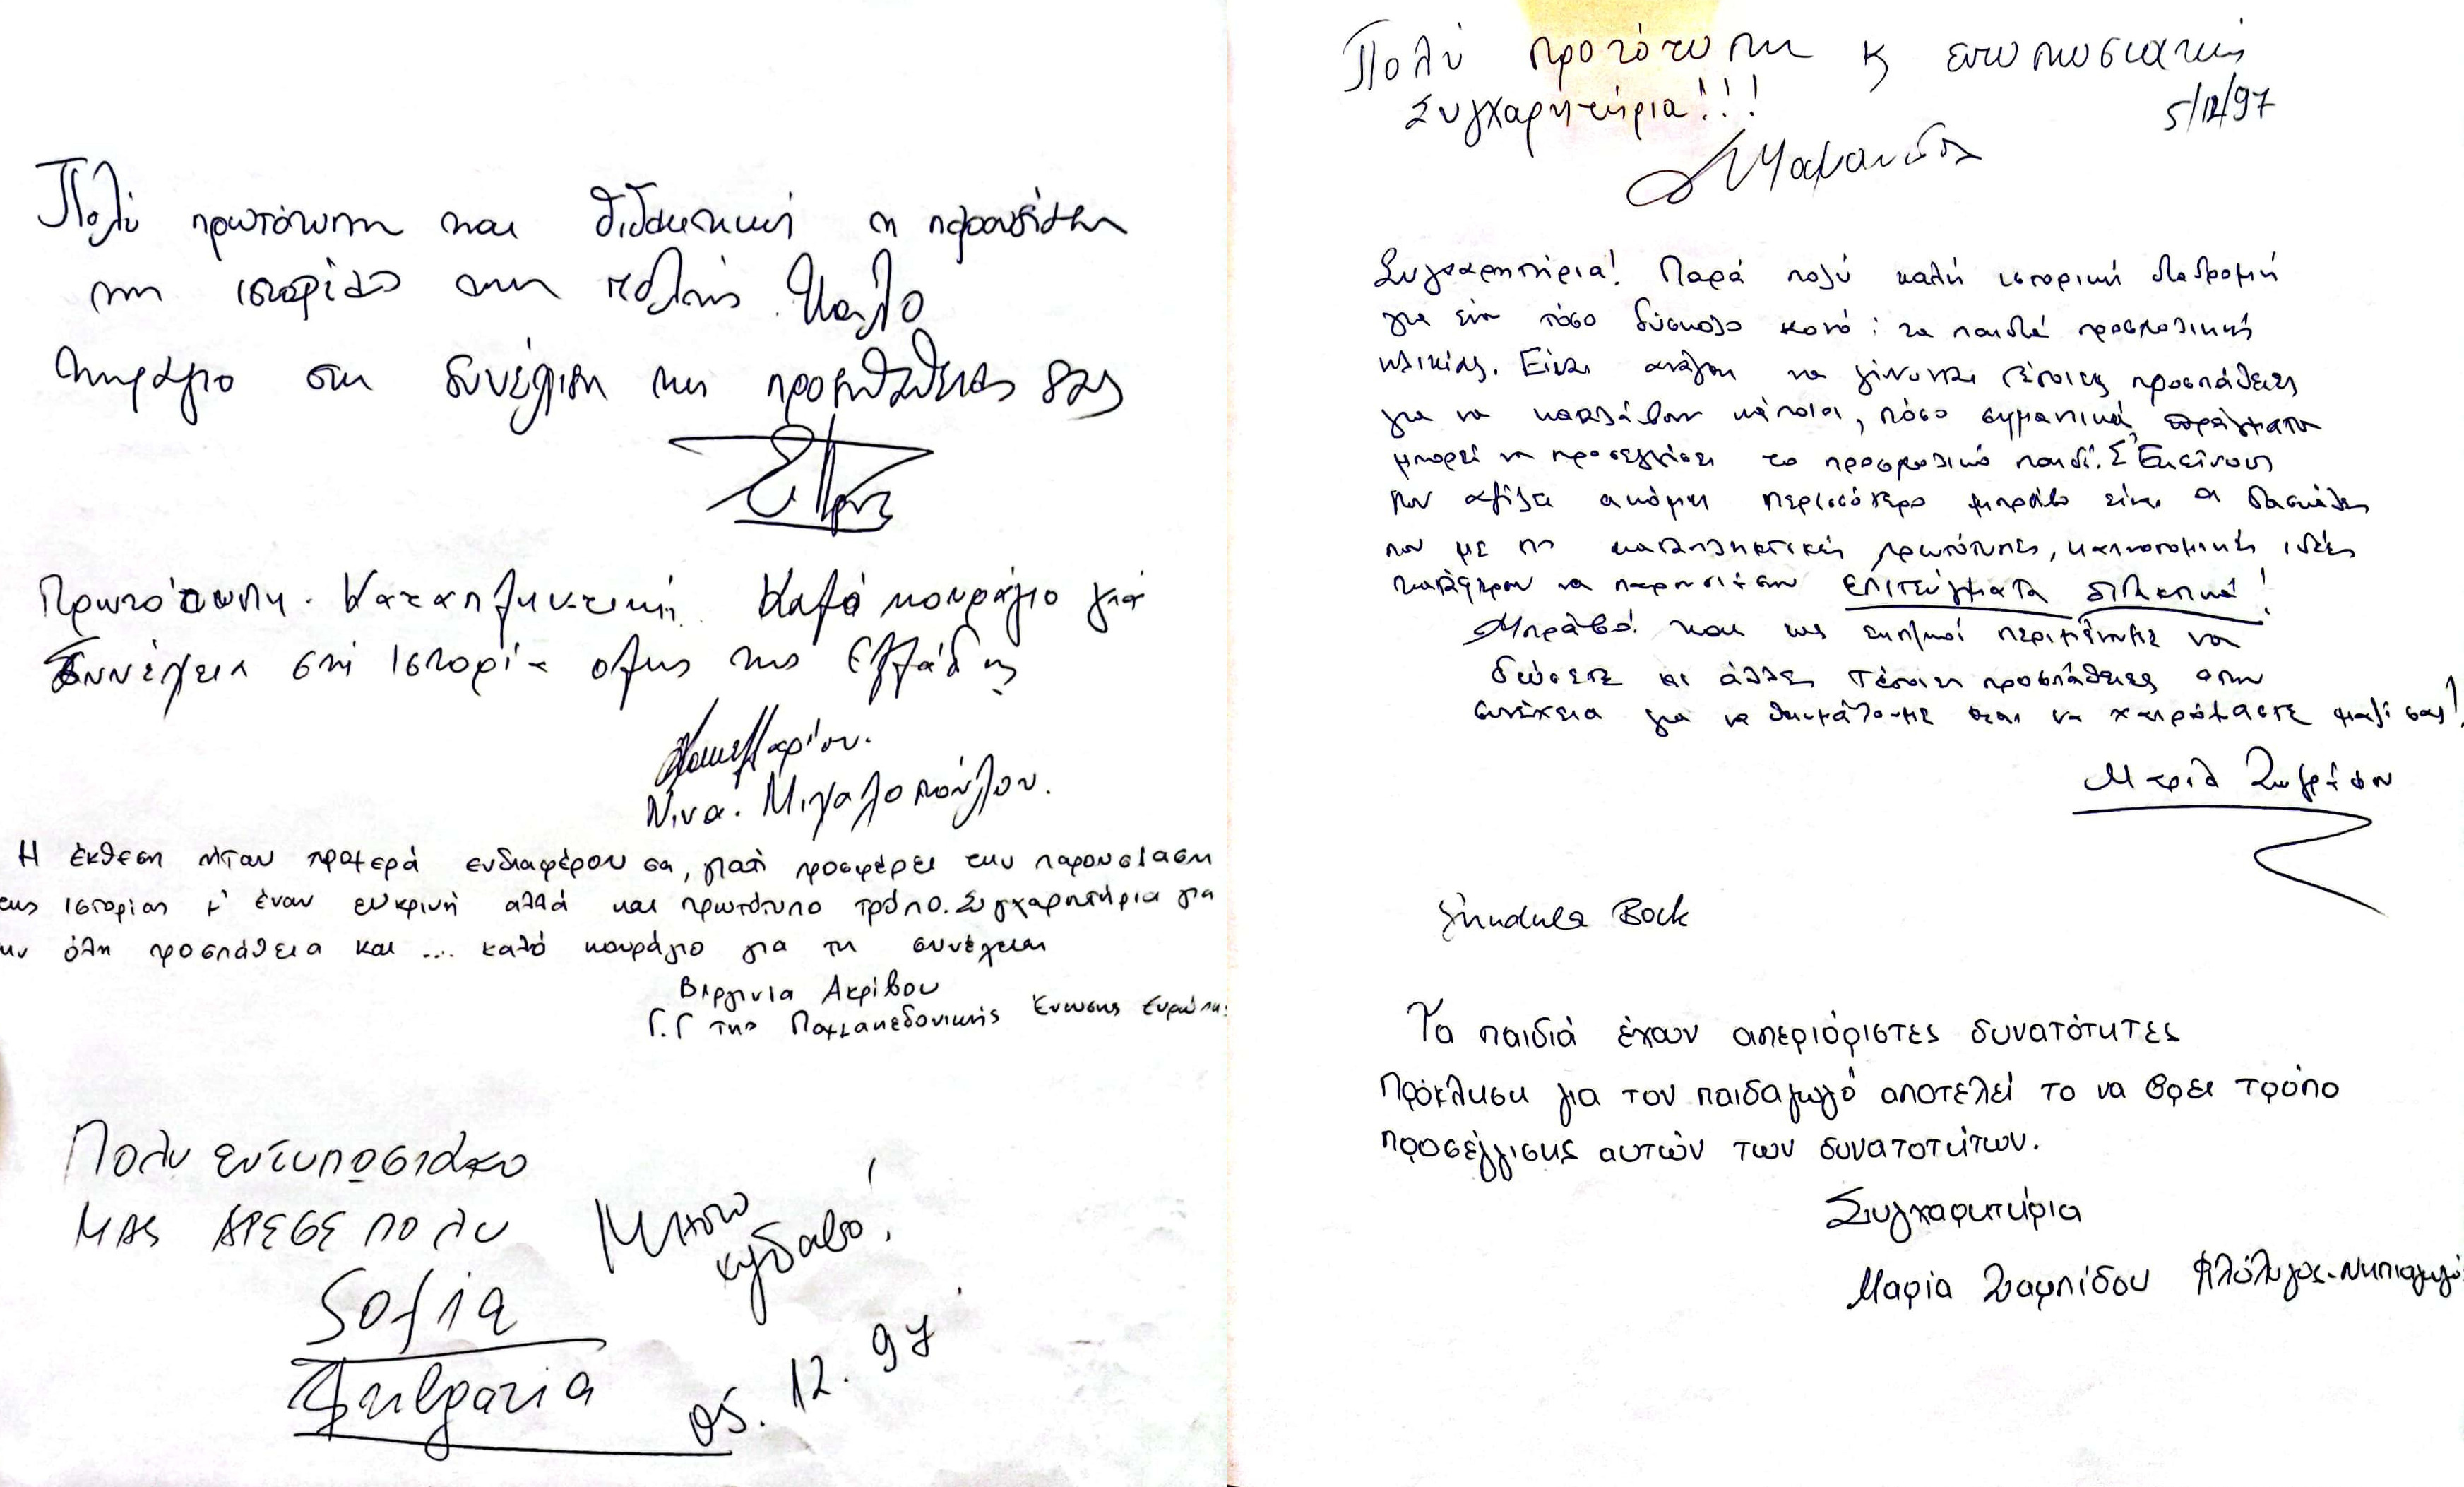 Πολύ πρωτότυπη και διδακτική η παρουσίαση
της ιστορίας της πόλης. Καλό
κουράγιο στη συνέχιση της προσπάθειας σας
Πρωτότυπη. Καταπληκτική. Καλό κουράγιο γιά
Συννέχεια στή Ιστορία ολης της Ελλάδης
Νινα. Μιχαλοπούλου.
Η έκθεση ήταν πραγματικά ενδιαφέρουσα, γιατί προσφέρει την παρουσίαση
της Ιστορίας μ' έναν ευκρινή αλλά και πρωτότυπο τρόπο. Συγχαρητήρια για
την όλη προσπάθεια και ... καλό κουράγιο για τη συνέχεια
Βιργινία Ακρίβου
Γ.Γ της Παμμακεδονικής Ένωσης Ευρώπης
Πολυ εντυπωσιακο
ΜΑΣ ΑΡΕΣΕ ΠΟΛΥ
Много
хубаво!
Sofia
Bulgaria
05. 12. 97
Πολύ προτότυπη κ εντυπωσιακή
Συγχαρητήρια!!!
5/12/97
Συγχαρητήρια! Παρά πολύ καλή ιστορική διαδρομή
για ένα τόσο δύσκολο κοινό: τα παιδιά προσχολικής
ηλικίας. Είναι ανάγκη να γίνονται τέτοιες προσπάθειες
για να καταλάβουν κάποιοι, πόσο σημαντικά πράγματα
μπορεί να προσεγγίσει το προσχολικό παιδί. Σ' Εκείνους
που αξίζει ακόμη περισσότερο μπράβο είναι οι δασκάλες
που με τις καταπληκτικές πρωτότυπες, καινοτομικές ιδέες
κατάφεραν να παρουσιάσουν επιτεύγματα διδακτικά!
Μπράβο! και ως εκπ/κοί περιμένουμε να
δώσετε κι άλλες τέτοιες προσπάθειες στην
συνέχεια για να θαυμάζουμε και να χαιρόμαστε μαζί σας!
Μαρία Ζωγράφου
Gundula Bock
Τα παιδιά έχουν απεριόριστες δυνατότητες
Πρόκληση για τον παιδαγωγό αποτελεί το να βρει τρόπο
προσέγγισης αυτών των δυνατοτήτων.
Συγχαρητήρια
Μαρία Φιλόλογος-Νηπιαγωγός